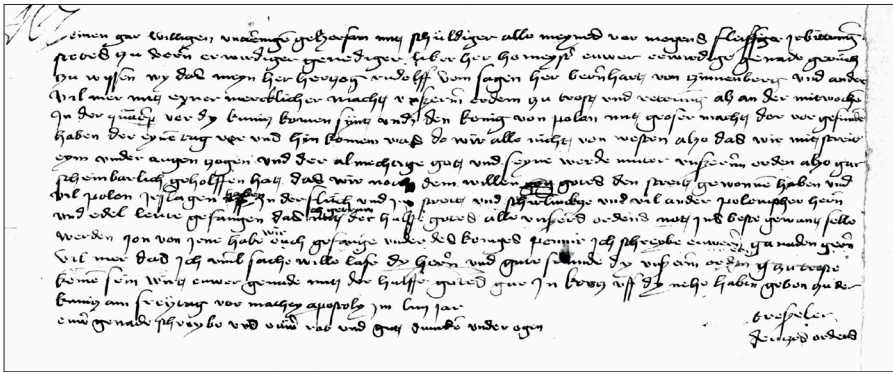 meinen gar willigen undirtenigen gehorsam mit schuldiger alle meynes vor mogens fleissiger
stetes zu vorn erwirdiger genediger liber her homeyster euwer erwirdige genade geruch
zu wissen wy das meyn her herczog rudolff vom sagen her bernhart von czinnenberg und ander
vil mer mit eyner mercklicher macht unserm ordem zu trost und rettung als an der mitwochen
in der vor dy kunicz komen synt und den konig von polan mit groser macht dor vor gefunden
haben der eynen tag vor und hyn komen was do wir alle nicht von westen also das wir mit streit
eym under augen zogen und der almechtige got und seyne werde muter unserm orden also gar
scheinbarlich geholffen hat das wir noch dem willen gotes den streit gewonnen haben und
vil polan irslagen in der flucht und im streit und und vil ander polenischer hern
und edel leute gefangen das mit der hulffe gotes alle unsers ordens not ins beste gewant selle
werden von jene habe wir euch gefange under des koniges panir ich schreybe euwern genaden gern
vil mer das ich umb sache wille lase dy hern und gute frunde dy unserm orden czu troste
komen sein wirt euwer genade mit der hulffe gotes gar in korcz uff dy nehe haben geben zu der
kunicz am freytag vor mathey apostoly im liiii jar
euwer genade schreybe und euwer rat und gut under ogen
treszeler
deutzes ordens